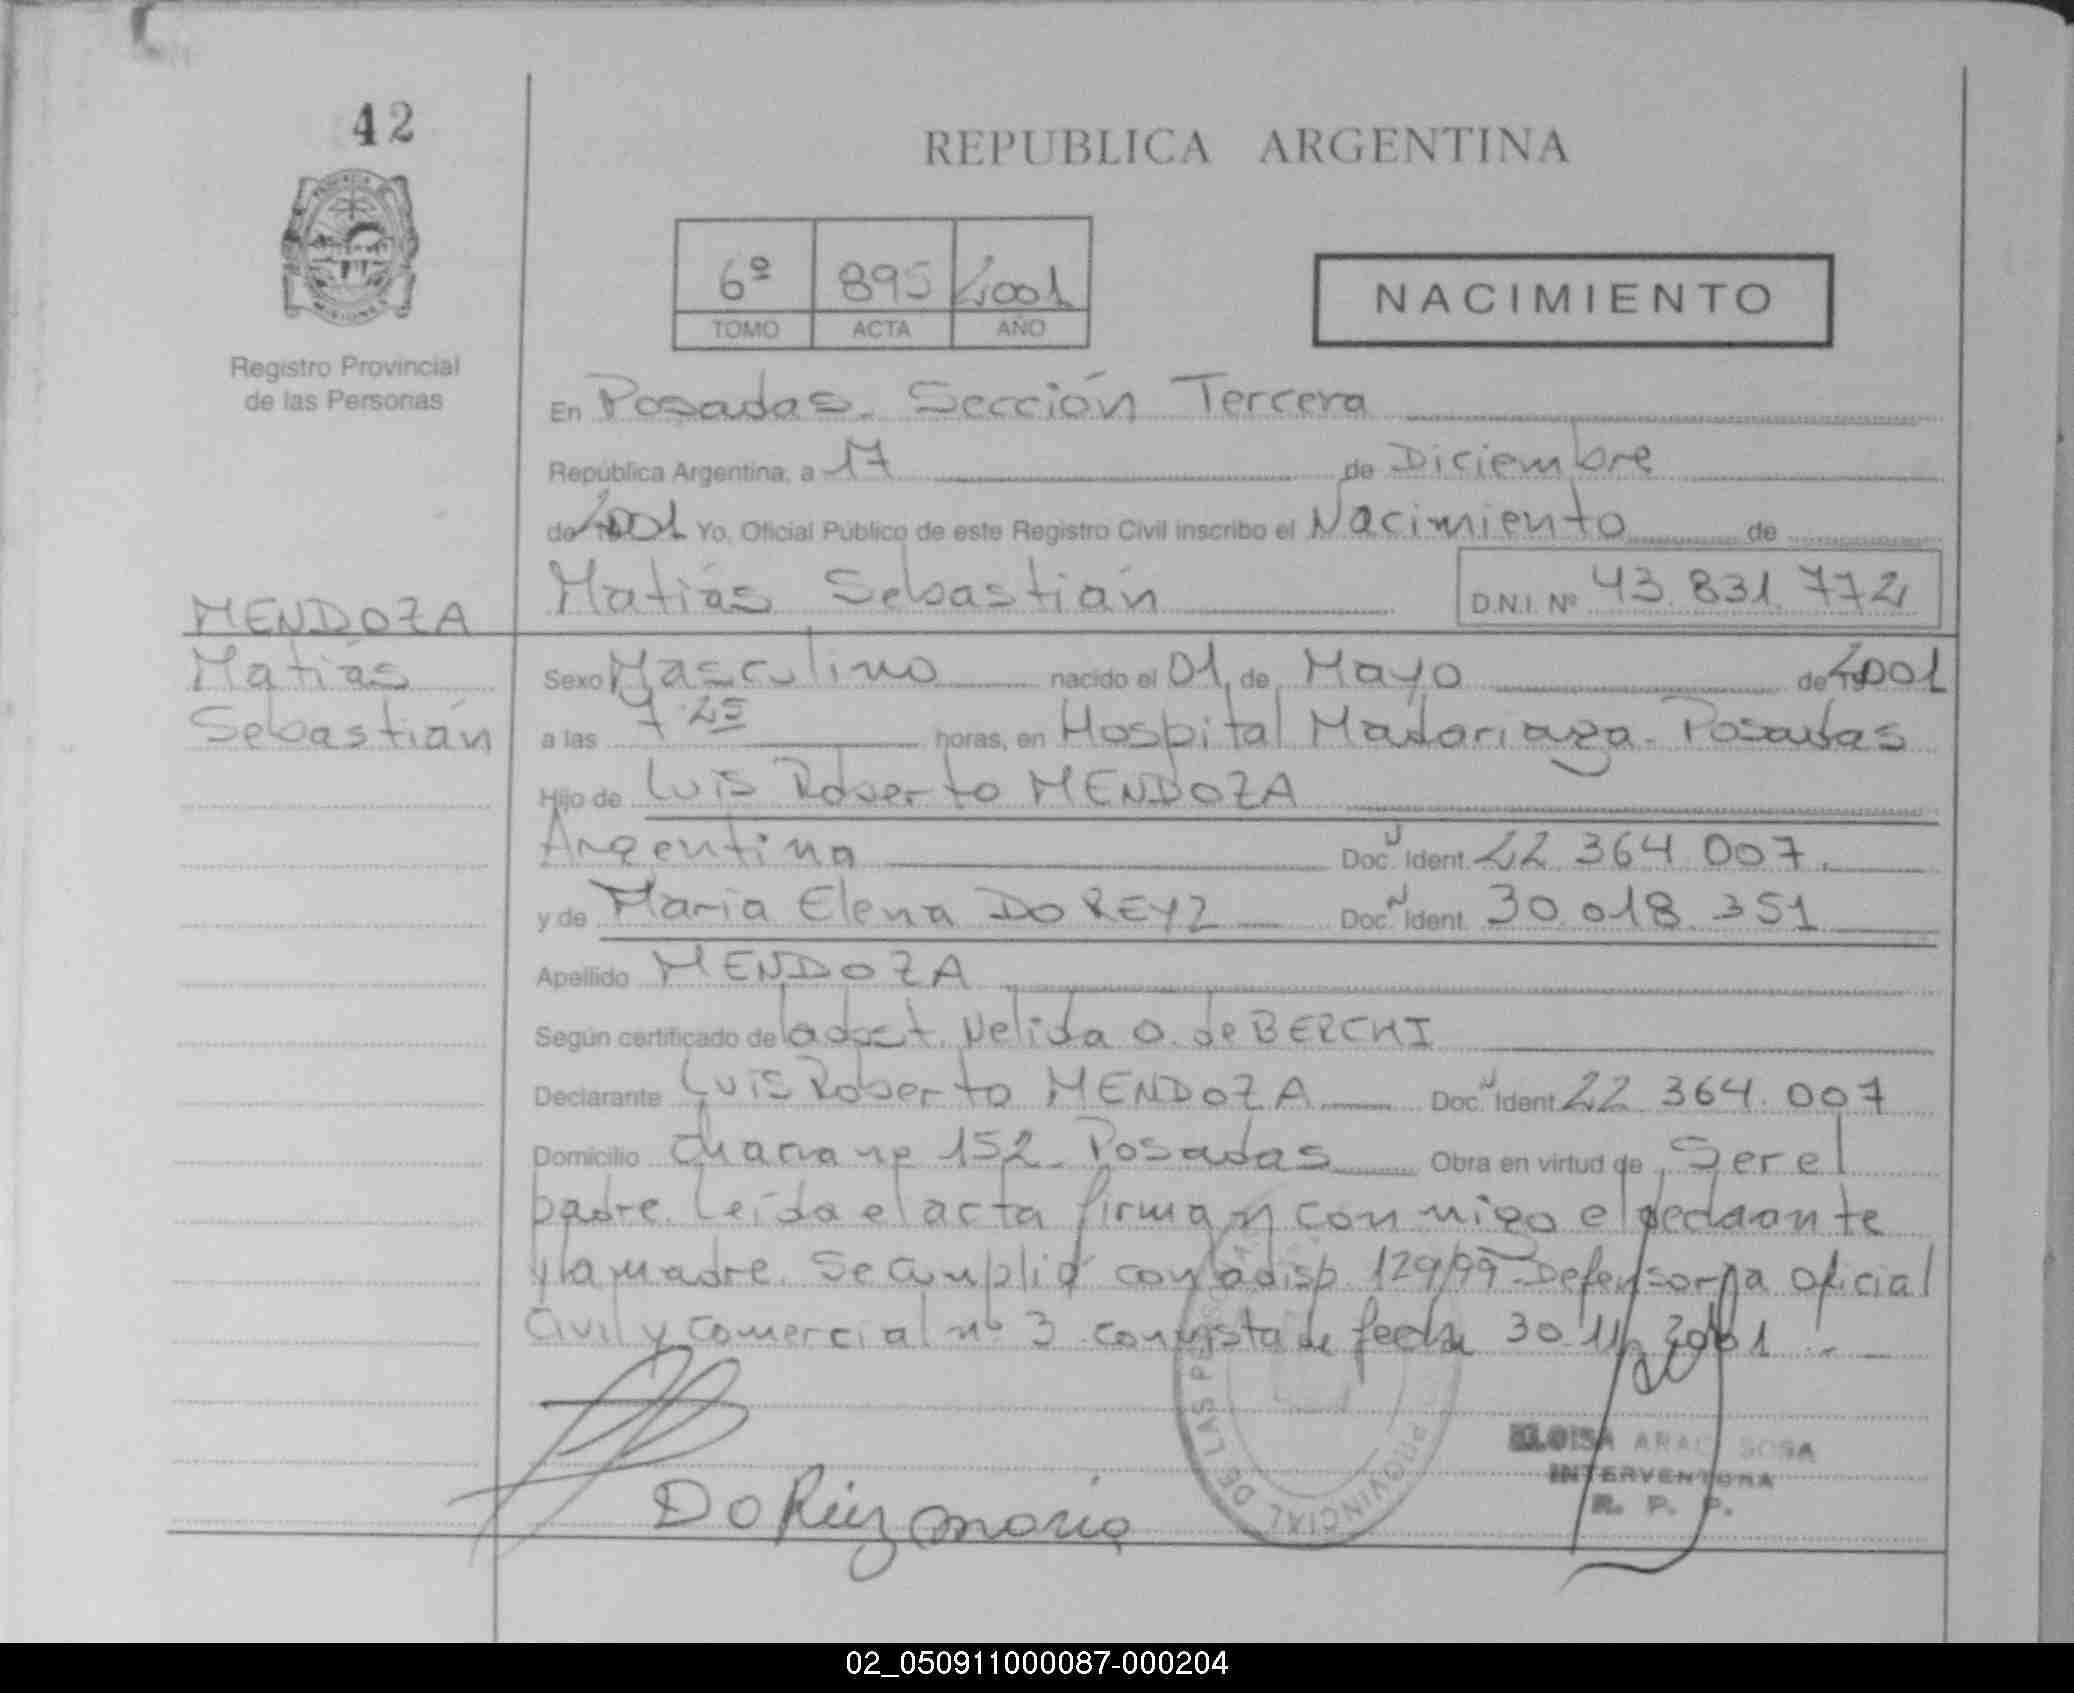 42
REPUBLICA ARGENTINA
6º 895 2001
TOMO ACTA AÑO
NACIMIENTO
Registro Provincial
de las Personas
En Posadas. Sección Tercera
República Argentina, a 17 de Diciembre
de 2001 Yo, Oficial Público de este Registro Civil inscribo el Nacimiento de
Matías Sebastián D.N.I. Nº 43.831.772
MENDOZA
Matías
Sebastián
Sexo Masculino nacido el 01 de Mayo de 2001
a las 7.25 horas, en Hospital Madariaga. Posadas
Hijo de Luis Roberto MENDOZA
Argentina Doc. Ident. 22 364 007.
y de Maria Elena DO REYZ Doc. Ident. 30.018.351
Apellido MENDOZA
Según certificado de la obst. Nelida O. de BERCHI
Declarante Luis Roberto MENDOZA Doc. Ident. 22.364.007
Domicilio 152 Posadas Obra en virtud de Ser el
padre. Leída el acta firman conmigo el declarante
y la madre. Se cumplió con la disp. 129/99 Defensoría Oficial
Civil y Comercial nº 3 con vista de fecha 30.11.2001
DE LAS PROVINCIAL
ELOISA ARACI SOSA
INTERVENTORA
R. P. P.
Do Reiz Maria
02_050911000087-000204